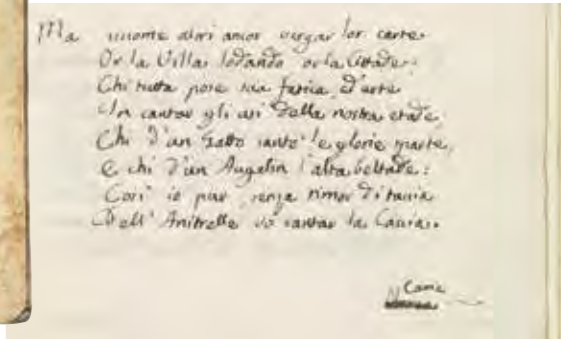 Ma siccome altri amar vergar lor carte
Or la Villa lodando or la Cittade:
Chi tutta pose sua fatica, ed arte
In cantar gli usi della nostra etade,
Chi d'un Gatto cantò le glorie sparte,
E chi d'un Augelin l'alta beltade:
Così io pur senza timor di taccia
Dell' Anitrelle vò cantar la Caccia.